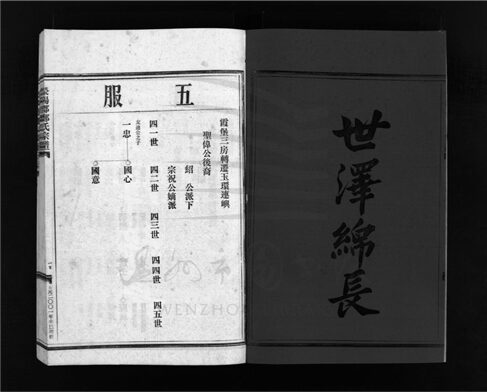 世澤綿長
五服
霞堡三房轉遷玉環連嶼
聖偉公後裔
紹 公派下
宗祝公嫡派
四一世 四二世 四三世 四四世 四五世
一忠 國心
國意